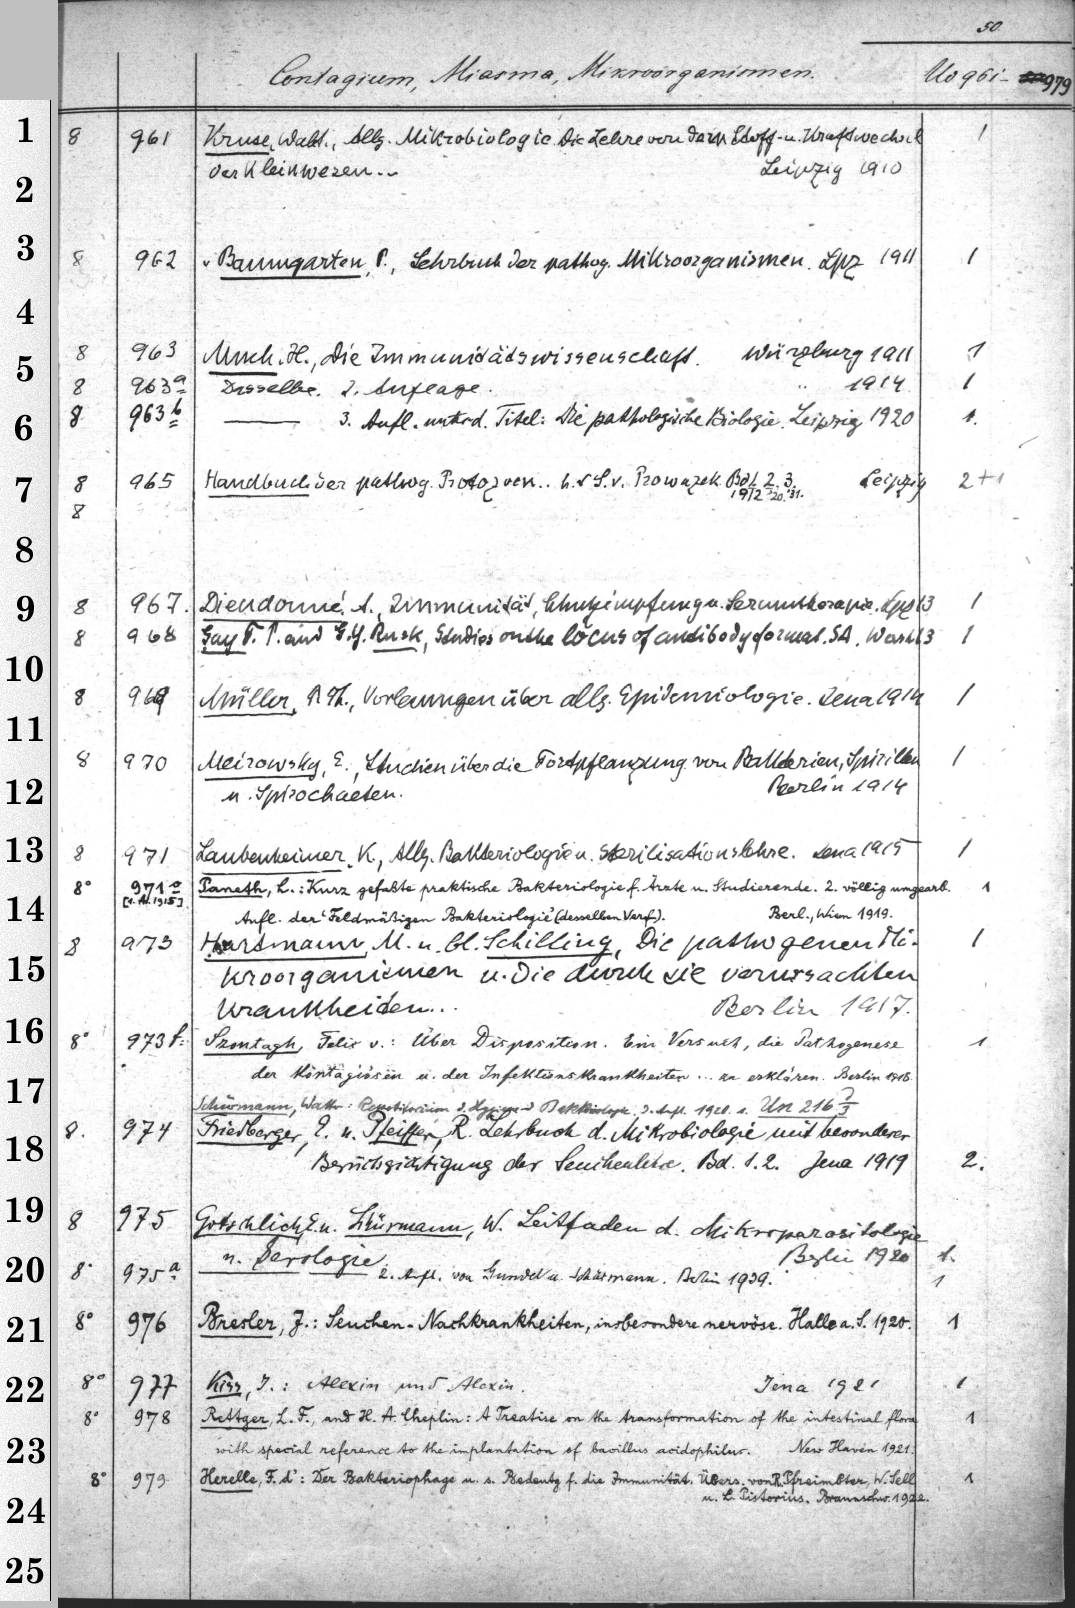 50
Contagium, Miasma, Mikroorganismen. Uo 961- 979
1
8 961 Kruse, Walt., Allg. Mikrobiologie. Die Lehre von dem Stoff- u. Kraftwechsel 1
2 der Kleinwesen.. Leipzig 1910
3 8 962 v. Baumgarten, P., Lehrbuch der pathog. Mikroorganismen. Lpz 1911 1
4
8 963 Much, H., Die Immunitätswissenschaft. Würzburg 1911 1
5
8 963a Dasselbe. 2. Auflage. " 1914 1
6 8 963b 3. Aufl. unt. d. Titel: Die pathologische Biologie. Leipzig 1920 1.
7 8 965 Handbuch der pathog. Protozoen.. h. v. S. v. Prowazek Bd 1. 2. 3. Leipzig 2+1
1912 20. 31.
8
8
9 8 967. Dieudonné, A., Immunität, Schutzimpfung u. Serumtherapie. Lpz 13 1
8 968 Gay F. P. and G. Y. Rusk, Studies on the locus of antibody format. SA. Wash 13 1
10
8 969 Müller, P. Th., Vorlesungen über allg. Epidemiologie. Jena 1914 1
11
8 970 Meirowsky, E., Studien über die Fortpflanzung von Bakterien, Spirillen 1
12 u. Spirochaeten. Berlin 1914
13 8 971 Laubenheimer, K., Allg. Bakteriologie u. Sterilisationslehre. Jena 1915 1
8° 971a Paneth, L.: Kurz gefaßte praktische Bakteriologie f. Ärzte u. Studierende. 2. völlig umgearb. 1
[1. A. 1915]
14 Aufl. der "Feldmäßigen Bakteriologie" (desselben Verf.). Berl., Wien 1919.
8 973 Hartmann, M. u. Cl. Schilling, Die pathogenen Mi- 1
15 kroorganismen u. die durch sie verursachten
Krankheiten... Berlin 1917.
16 8° 973f: Szontagh, Felix v.: Über Disposition. Ein Versuch, die Pathogenese 1
der kontagiösen u. der Infektionskrankheiten ... zu erklären. Berlin 1918.
17
Schürmann, Walter: Repetitorium d. Hygiene u. Bakteriologie. 3. Aufl. 1920. s. Un 216
18 8. 974 Friedberger, E. u. Pfeiffer, R. Lehrbuch d. Mikrobiologie mit besonderer
Berücksichtigung der Seuchenlehre. Bd. 1. 2. Jena 1919 2.
19 8 975 Gotschlich, E. u. Schürmann, W. Leitfaden d. Mikroparasitologie
u. Serologie Berlin 1920 1.
20 8° 975a 2. Aufl. von Gundel u. Schürmann. Berlin 1939. 1
21 8° 976 Bresler, J.: Seuchen-Nachkrankheiten, insbesondere nervöse. Halle a. S. 1920. 1
22 8° 977 Kiss, J.: Alexin und Alexin. Jena 1921 1
8° 978 Rettger, L. F., and H. A. Cheplin: A Treatise on the transformation of the intestinal flora 1
23 with special reference to the implantation of bacillus acidophilus. New Haven 1921.
8° 979 Herelle, F. d': Der Bakteriophage u. s. Bedeutg f. die Immunität. Übers. von R. Pfreimbter, W. Sell 1
24 u. L. Pistorius. Braunschw. 1922.
25